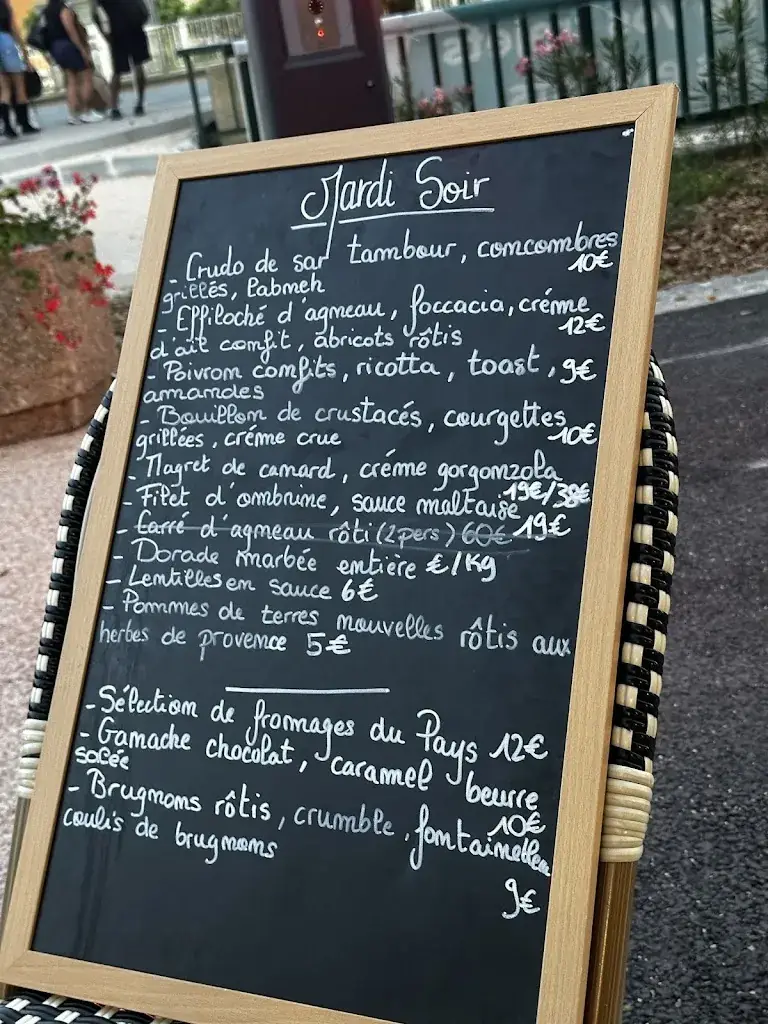 Mardi Soir
- Crudo de sar tambour, concombres
grillés, labneh 10€
- Effiloché d'agneau, foccacia, créme
d'ail confit, abricots rôtis 12€
- Poivron confits, ricotta, toast, 9€
amandes
- Bouillon de crustacés, courgettes
grillées, créme crue 10€
- Magret de canard, créme gorgonzola
19€/38€
- Filet d'ombrine, sauce maltaise
- Carré d'agneau rôti (2 pers) 60€ 19€
- Dorade marbée entière €/Kg
- Lentilles en sauce 6€
- Pommes de terres nouvelles rôtis aux
herbes de provence 5€
- Sélection de fromages du Pays 12€
- Ganache chocolat, caramel beurre
salée 10€
- Brugnons rôtis, crumble, fontainebleau
coulis de brugnons
9€